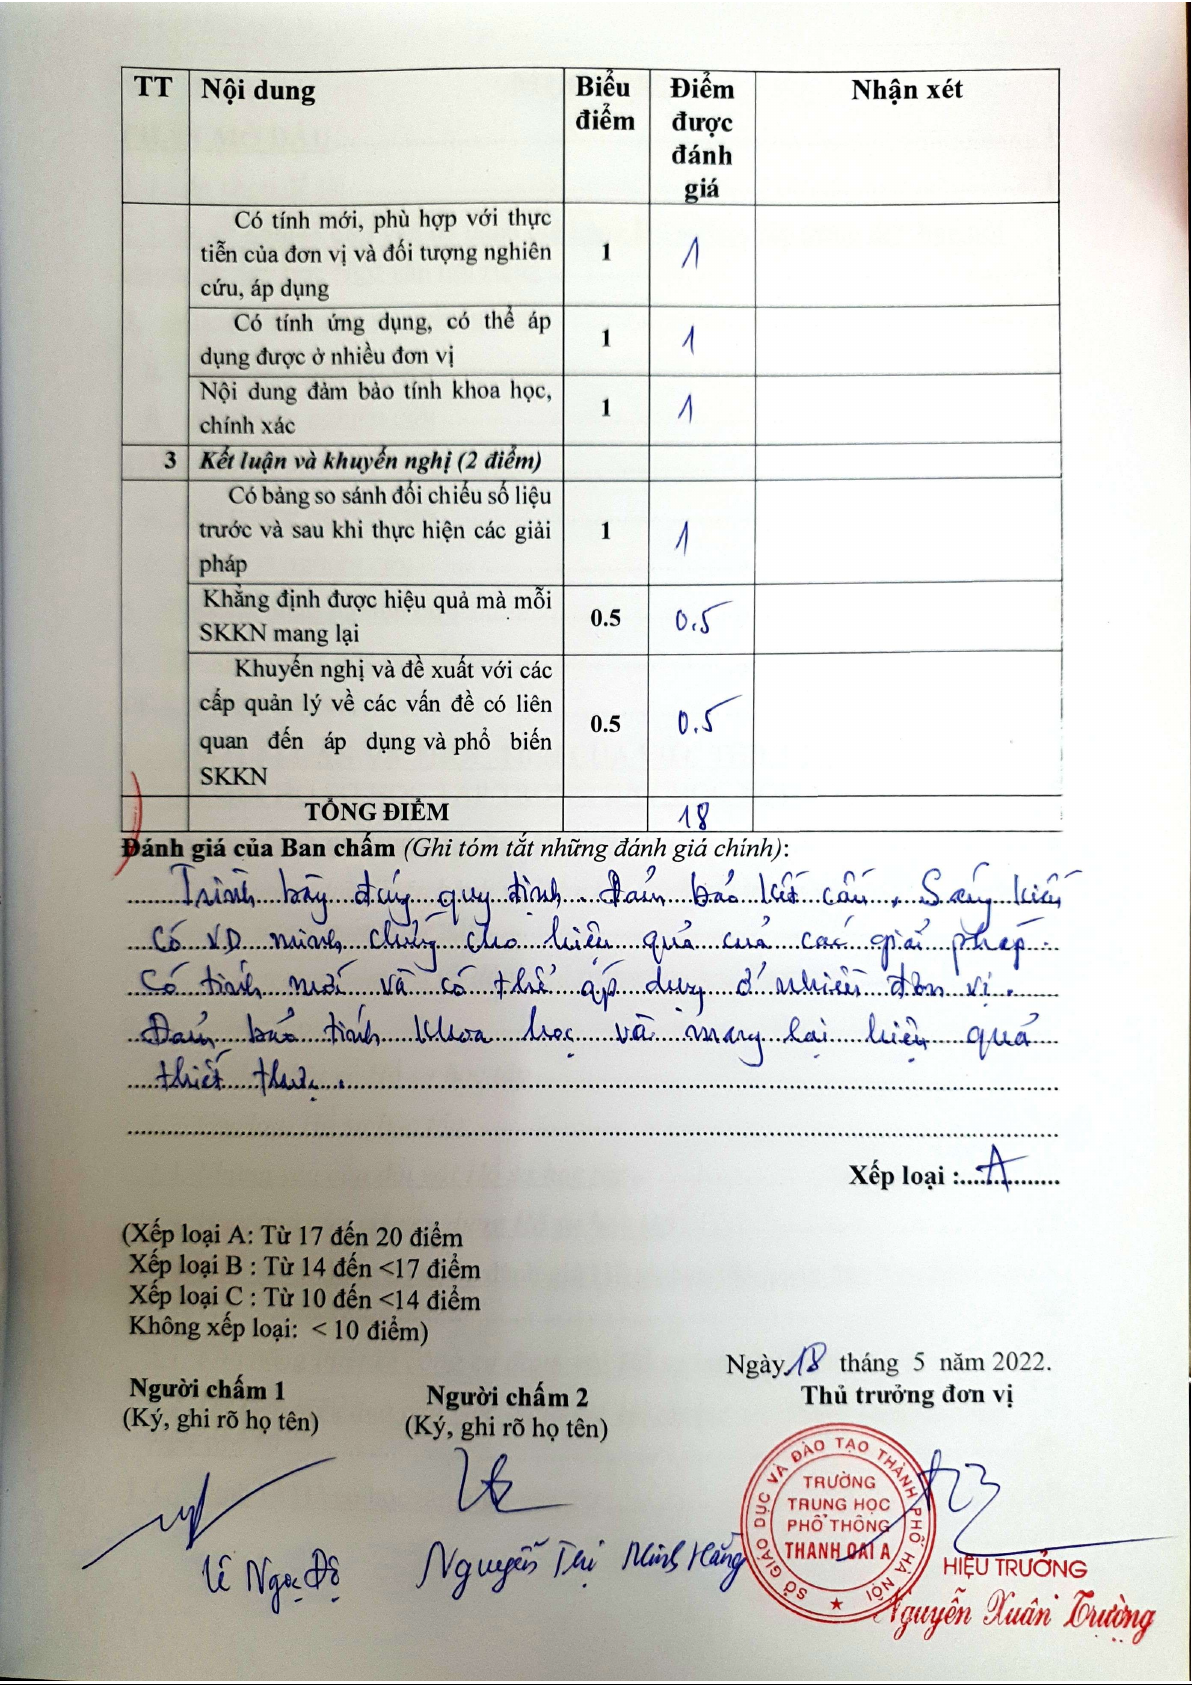 TT Nội dung Biểu điểm Điểm được đánh giá Nhận xét
Có tính mới, phù hợp với thực
tiễn của đơn vị và đối tượng nghiên 1 1
cứu, áp dụng
Có tính ứng dụng, có thể áp
dụng được ở nhiều đơn vị 1 1
Nội dung đảm bảo tính khoa học,
chính xác 1 1
3 Kết luận và khuyến nghị (2 điểm)
Có bảng so sánh đối chiếu số liệu
trước và sau khi thực hiện các giải 1 1
pháp
Khẳng định được hiệu quả mà mỗi
SKKN mang lại 0.5 0.5
Khuyến nghị và đề xuất với các
cấp quản lý về các vấn đề có liên
quan đến áp dụng và phổ biến 0.5 0.5
SKKN
TỔNG ĐIỂM 18
Đánh giá của Ban chấm (Ghi tóm tắt những đánh giá chính):
Trình bày đúng quy định. Đảm bảo kết cấu. Sáng kiến
có VD minh chứng cho hiệu quả của các giải pháp.
Có tính mới và có thể áp dụng ở nhiều đơn vị.
Đảm bảo tính khoa học và mang lại hiệu quả
thiết thực.
Xếp loại :....A
(Xếp loại A: Từ 17 đến 20 điểm
Xếp loại B : Từ 14 đến <17 điểm
Xếp loại C : Từ 10 đến <14 điểm
Không xếp loại: < 10 điểm)
Ngày 18 tháng 5 năm 2022.
Người chấm 1 Người chấm 2 Thủ trưởng đơn vị
(Ký, ghi rõ họ tên) (Ký, ghi rõ họ tên)
SỞ GIÁO DỤC VÀ ĐÀO TẠO THÀNH PHỐ HÀ NỘI
TRƯỜNG
TRUNG HỌC
PHỔ THÔNG
THANH OAI A
HIỆU TRƯỞNG
Lê Ngọc Độ Nguyễn Thị Minh Hằng
Nguyễn Xuân Trường